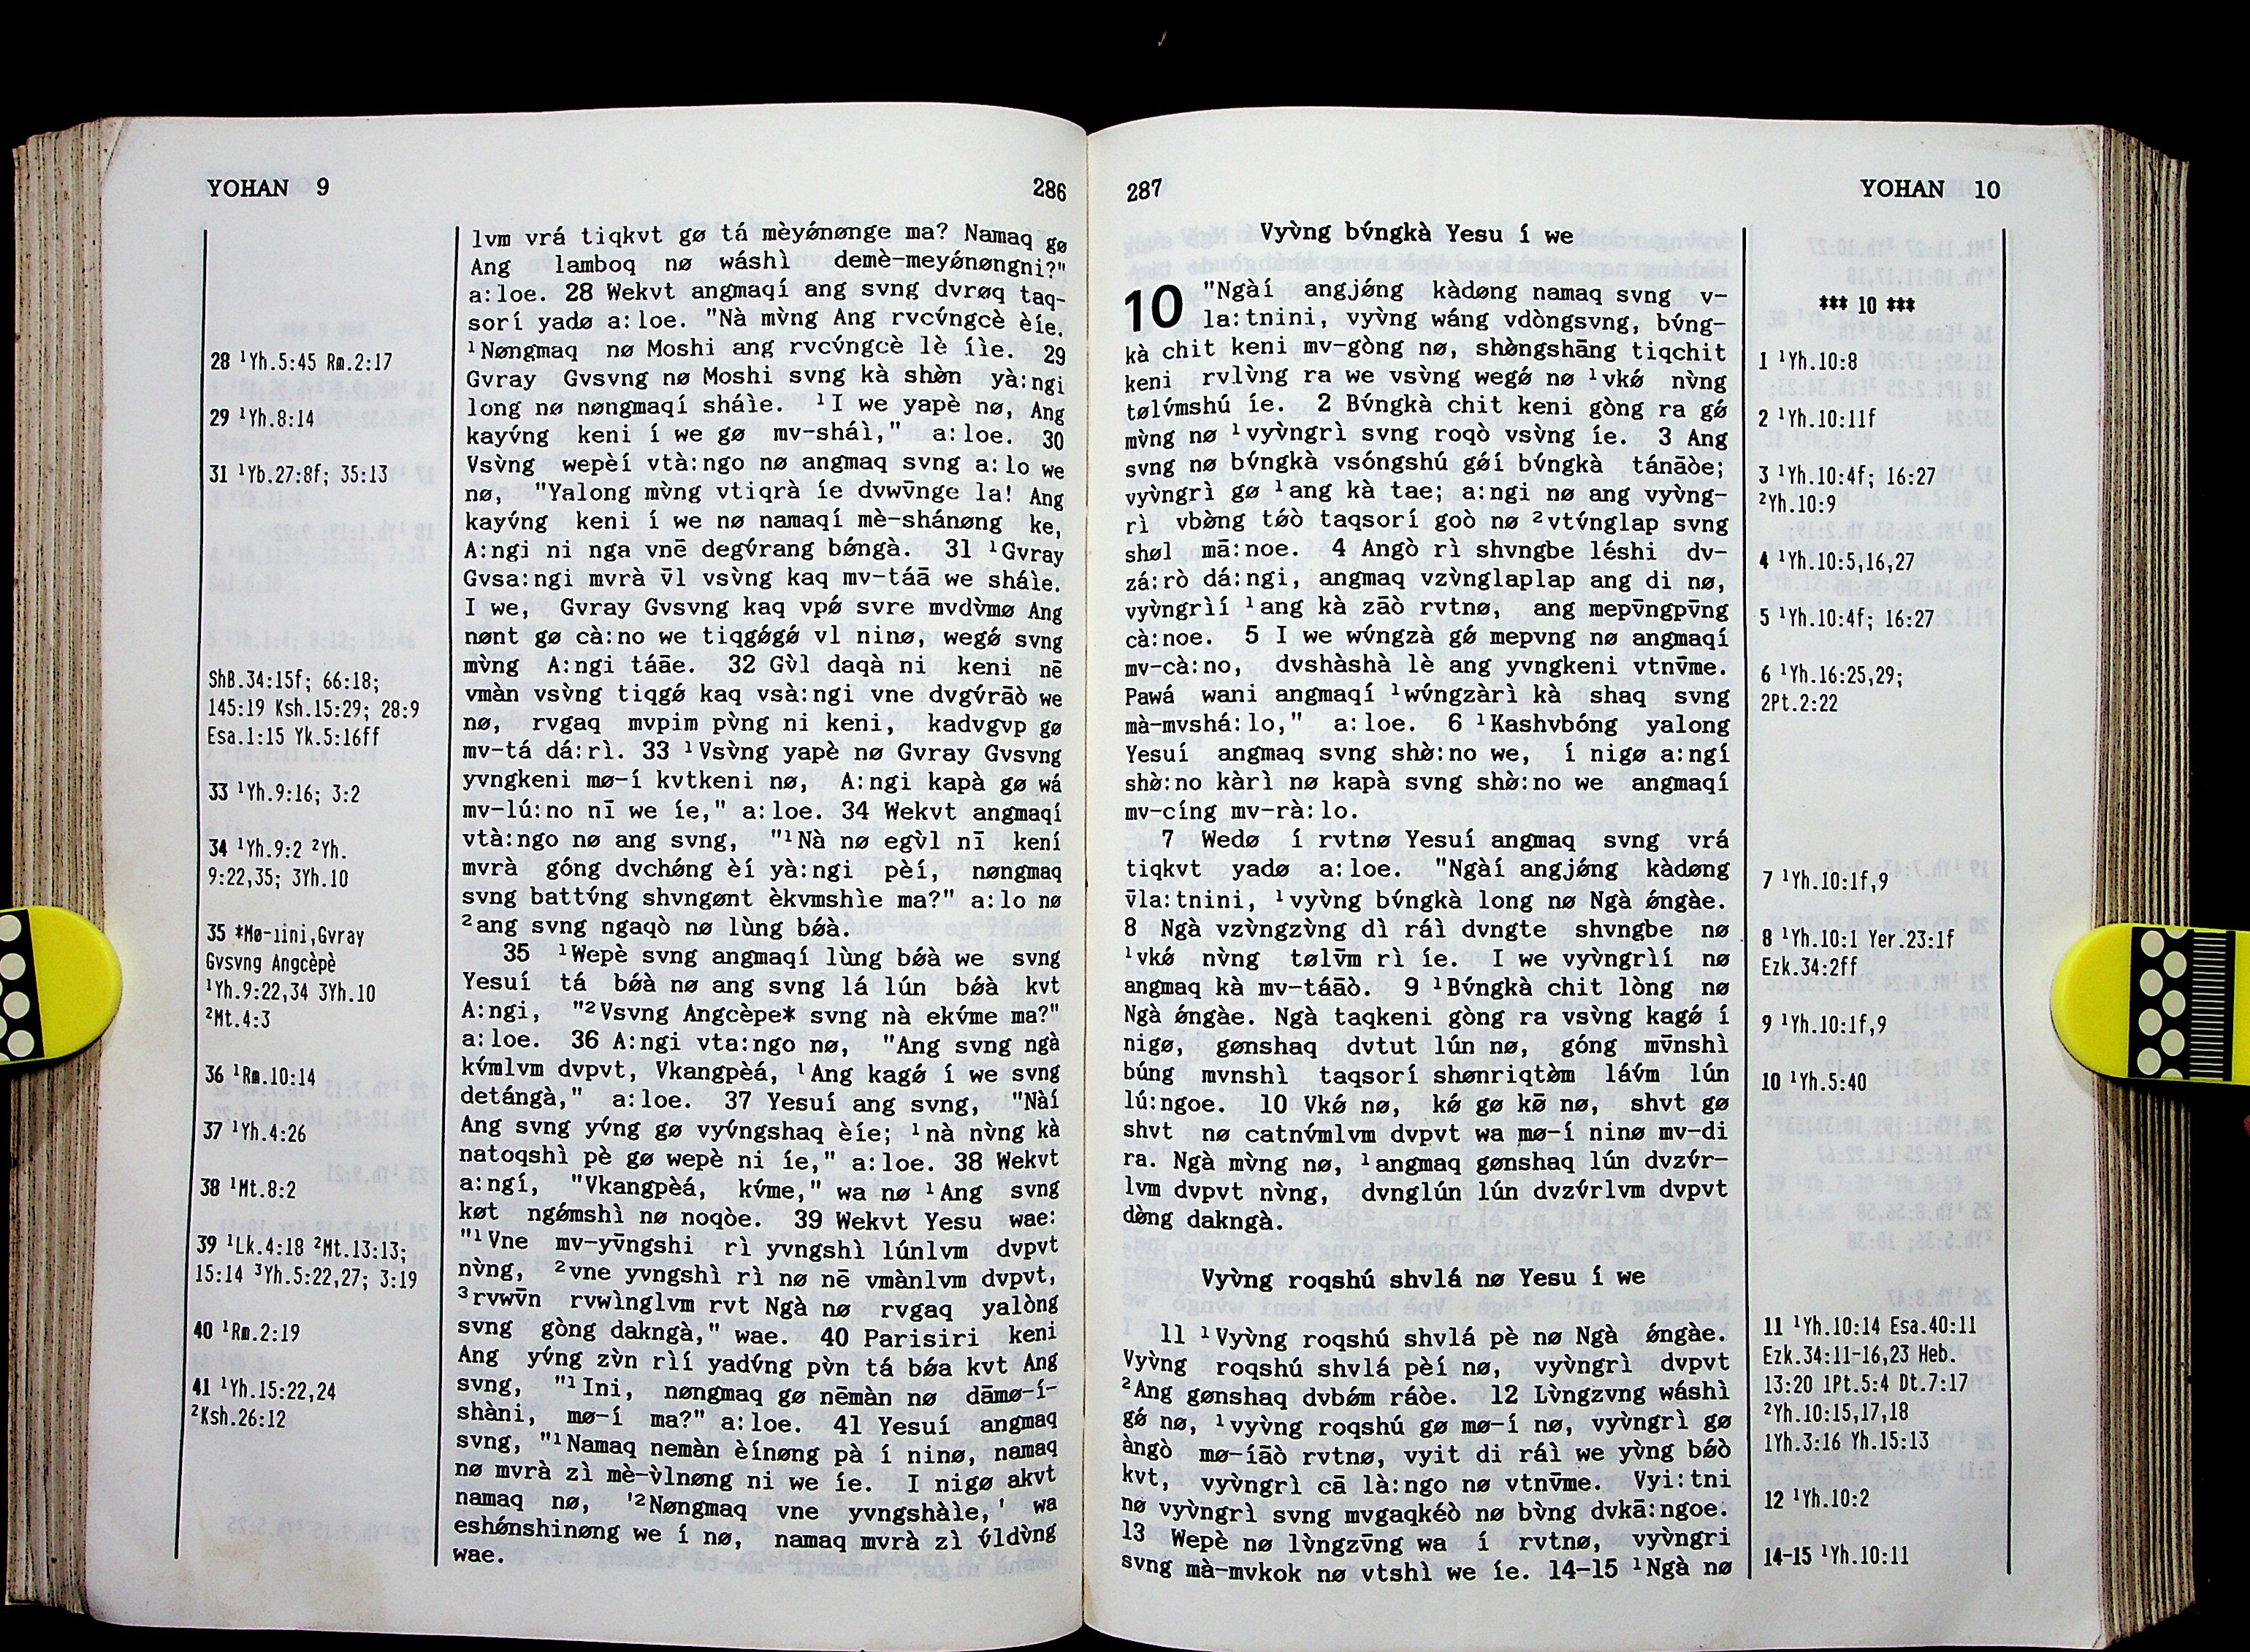 YOHAN 9
286
28 ¹Yh.5:45 Rm.2:17
29 ¹Yh.8:14
31 ¹Yb.27:8f; 35:13
ShB.34:15f; 66:18;
145:19 Ksh.15:29; 28:9
Esa.1:15 Yk.5:16ff
33 ¹Yh.9:16; 3:2
34 ¹Yh.9:2 ²Yh.
9:22,35; 3Yh.10
35 *Mø-iini,Gvray
Gvsvng Angcèpè
¹Yh.9:22,34 3Yh.10
²Mt.4:3
36 ¹Rm.10:14
37 ¹Yh.4:26
38 ¹Mt.8:2
39 ¹Lk.4:18 ²Mt.13:13;
15:14 ³Yh.5:22,27; 3:19
40 ¹Rm.2:19
41 ¹Yh.15:22,24
²Ksh.26:12
lvm vrá tiqkvt gø tá mèyǿnønge ma? Namaq gø
Ang lamboq nø wáshì demè-meyǿnøngni?"
a:loe. 28 Wekvt angmaqí ang svng dvrøq taq-
sorí yadø a:loe. "Nà mv̀ng Ang rvcv́ngcè èíe.
¹Nøngmaq nø Moshi ang rvcv́ngcè lè íìe. 29
Gvray Gvsvng nø Moshi svng kà shø̀n yà:ngi
long nø nøngmaqí sháìe. ¹I we yapè nø, Ang
kayv́ng keni í we gø mv-sháì," a:loe. 30
Vsv̀ng wepèí vtà:ngo nø angmaq svng a:lo we
nø, "Yalong mv̀ng vtiqrà íe dvwv̄nge la! Ang
kayv́ng keni í we nø namaqí mè-shánøng ke,
A:ngi ni nga vnē degv́rang bǿngà. 31 ¹Gvray
Gvsa:ngi mvrà v̄l vsv̀ng kaq mv-táā we sháìe.
I we, Gvray Gvsvng kaq vpǿ svre mvdv̀mø Ang
nønt gø cà:no we tiqgǿgǿ vl ninø, wegǿ svng
mv̀ng A:ngi táāe. 32 Gv̀l daqà ni keni nē
vmàn vsv̀ng tiqgǿ kaq vsà:ngi vne dvgv́rāò we
nø, rvgaq mvpim pv̀ng ni keni, kadvgvp gø
mv-tá dá:rì. 33 ¹Vsv̀ng yapè nø Gvray Gvsvng
yvngkeni mø-í kvtkeni nø, A:ngi kapà gø wá
mv-lú:no nī we íe," a:loe. 34 Wekvt angmaqí
vtà:ngo nø ang svng, "¹Nà nø egv̀l nī kení
mvrà góng dvchǿng èí yà:ngi pèí, nøngmaq
svng battv́ng shvngønt èkvmshìe ma?" a:lo nø
²ang svng ngaqò nø lùng bǿà.
35 ¹Wepè svng angmaqí lùng bǿà we svng
Yesuí tá bǿà nø ang svng lá lún bǿà kvt
A:ngi, "²Vsvng Angcèpe* svng nà ekv́me ma?"
a:loe. 36 A:ngi vta:ngo nø, "Ang svng ngà
kv́mlvm dvpvt, Vkangpèá, ¹Ang kagǿ í we svng
detángà," a:loe. 37 Yesuí ang svng, "Nàí
Ang svng yv́ng gø vyv́ngshaq èíe; ¹nà nv̀ng kà
natoqshì pè gø wepè ni íe," a:loe. 38 Wekvt
a:ngí, "Vkangpèá, kv́me," wa nø ¹Ang svng
køt ngǿmshì nø noqòe. 39 Wekvt Yesu wae:
"¹Vne mv-yv̄ngshi rì yvngshì lúnlvm dvpvt
nv̀ng, ²vne yvngshì rì nø nē vmànlvm dvpvt,
³rvwv̄n rvwìnglvm rvt Ngà nø rvgaq yalòng
svng gòng dakngà," wae. 40 Parisiri keni
Ang yv́ng zv̀n rìí yadv́ng pv̀n tá bǿa kvt Ang
svng, "¹Ini, nøngmaq gø nēmàn nø dāmø-í-
shàni, mø-í ma?" a:loe. 41 Yesuí angmaq
svng, "¹Namaq nemàn èínøng pà í ninø, namaq
nø mvrà zì mè-v̀lnøng ni we íe. I nigø akvt
namaq nø, '²Nøngmaq vne yvngshàìe,' wa
eshǿnshinøng we í nø, namaq mvrà zì v́ldv̀ng
wae.
287
YOHAN 10
Vyv̀ng bv́ngkà Yesu í we
10 "Ngàí angjǿng kàdøng namaq svng v-
la:tnini, vyv̀ng wáng vdòngsvng, bv́ng-
kà chit keni mv-gòng nø, shø̀ngshāng tiqchit
keni rvlv̀ng ra we vsv̀ng wegǿ nø ¹vkǿ nv̀ng
tølv́mshú íe. 2 Bv́ngkà chit keni gòng ra gǿ
mv̀ng nø ¹vyv̀ngrì svng roqò vsv̀ng íe. 3 Ang
svng nø bv́ngkà vsóngshú gǿí bv́ngkà tánāòe;
vyv̀ngrì gø ¹ang kà tae; a:ngi nø ang vyv̀ng-
rì vbø̀ng tǿò taqsorí goò nø ²vtv́nglap svng
shøl mā:noe. 4 Angò rì shvngbe léshi dv-
zá:rò dá:ngi, angmaq vzv̀nglaplap ang di nø,
vyv̀ngrìí ¹ang kà zāò rvtnø, ang mepv̄ngpv̄ng
cà:noe. 5 I we wv́ngzà gǿ mepvng nø angmaqí
mv-cà:no, dvshàshà lè ang yvngkeni vtnv̄me.
Pawá wani angmaqí ¹wv́ngzàrì kà shaq svng
mà-mvshá:lo," a:loe. 6 ¹Kashvbóng yalong
Yesuí angmaq svng shø̀:no we, í nigø a:ngí
shø̀:no kàrì nø kapà svng shø̀:no we angmaqí
mv-cíng mv-rà:lo.
7 Wedø í rvtnø Yesuí angmaq svng vrá
tiqkvt yadø a:loe. "Ngàí angjǿng kàdøng
v̄la:tnini, ¹vyv̀ng bv́ngkà long nø Ngà ǿngàe.
8 Ngà vzv̀ngzv̀ng dì ráì dvngte shvngbe nø
¹vkǿ nv̀ng tølv̄m rì íe. I we vyv̀ngrìí nø
angmaq kà mv-táāò. 9 ¹Bv́ngkà chit lòng nø
Ngà ǿngàe. Ngà taqkeni gòng ra vsv̀ng kagǿ í
nigø, gønshaq dvtut lún nø, góng mv̄nshì
búng mvnshì taqsorí shønriqtø̀m láv́m lún
lú:ngoe. 10 Vkǿ nø, kǿ gø kø̄ nø, shvt gø
shvt nø catnv́mlvm dvpvt wa mø-í ninø mv-di
ra. Ngà mv̀ng nø, ¹angmaq gønshaq lún dvzv́r-
lvm dvpvt nv̀ng, dvnglún lún dvzv́rlvm dvpvt
dø̀ng dakngà.
Vyv̀ng roqshú shvlá nø Yesu í we
11 ¹Vyv̀ng roqshú shvlá pè nø Ngà ǿngàe.
Vyv̀ng roqshú shvlá pèí nø, vyv̀ngrì dvpvt
²Ang gønshaq dvbǿm ráòe. 12 Lv̀ngzvng wáshì
gǿ nø, ¹vyv̀ng roqshú gø mø-í nø, vyv̀ngrì gø
àngò mø-íāò rvtnø, vyit di ráì we yv̀ng bǿò
kvt, vyv̀ngrì cā là:ngo nø vtnv̄me. Vyi:tni
nø vyv̀ngrì svng mvgaqkéò nø bv̀ng dvkā:ngoe.
13 Wepè nø lv̀ngzv̄ng wa í rvtnø, vyv̀ngri
svng mà-mvkok nø vtshì we íe. 14-15 ¹Ngà nø
*** 10 ***
1 ¹Yh.10:8
2 ¹Yh.10:11f
3 ¹Yh.10:4f; 16:27
²Yh.10:9
4 ¹Yh.10:5,16,27
5 ¹Yh.10:4f; 16:27
6 ¹Yh.16:25,29;
2Pt.2:22
7 ¹Yh.10:1f,9
8 ¹Yh.10:1 Yer.23:1f
Ezk.34:2ff
9 ¹Yh.10:1f,9
10 ¹Yh.5:40
11 ¹Yh.10:14 Esa.40:11
Ezk.34:11-16,23 Heb.
13:20 1Pt.5:4 Dt.7:17
²Yh.10:15,17,18
1Yh.3:16 Yh.15:13
12 ¹Yh.10:2
14-15 ¹Yh.10:11